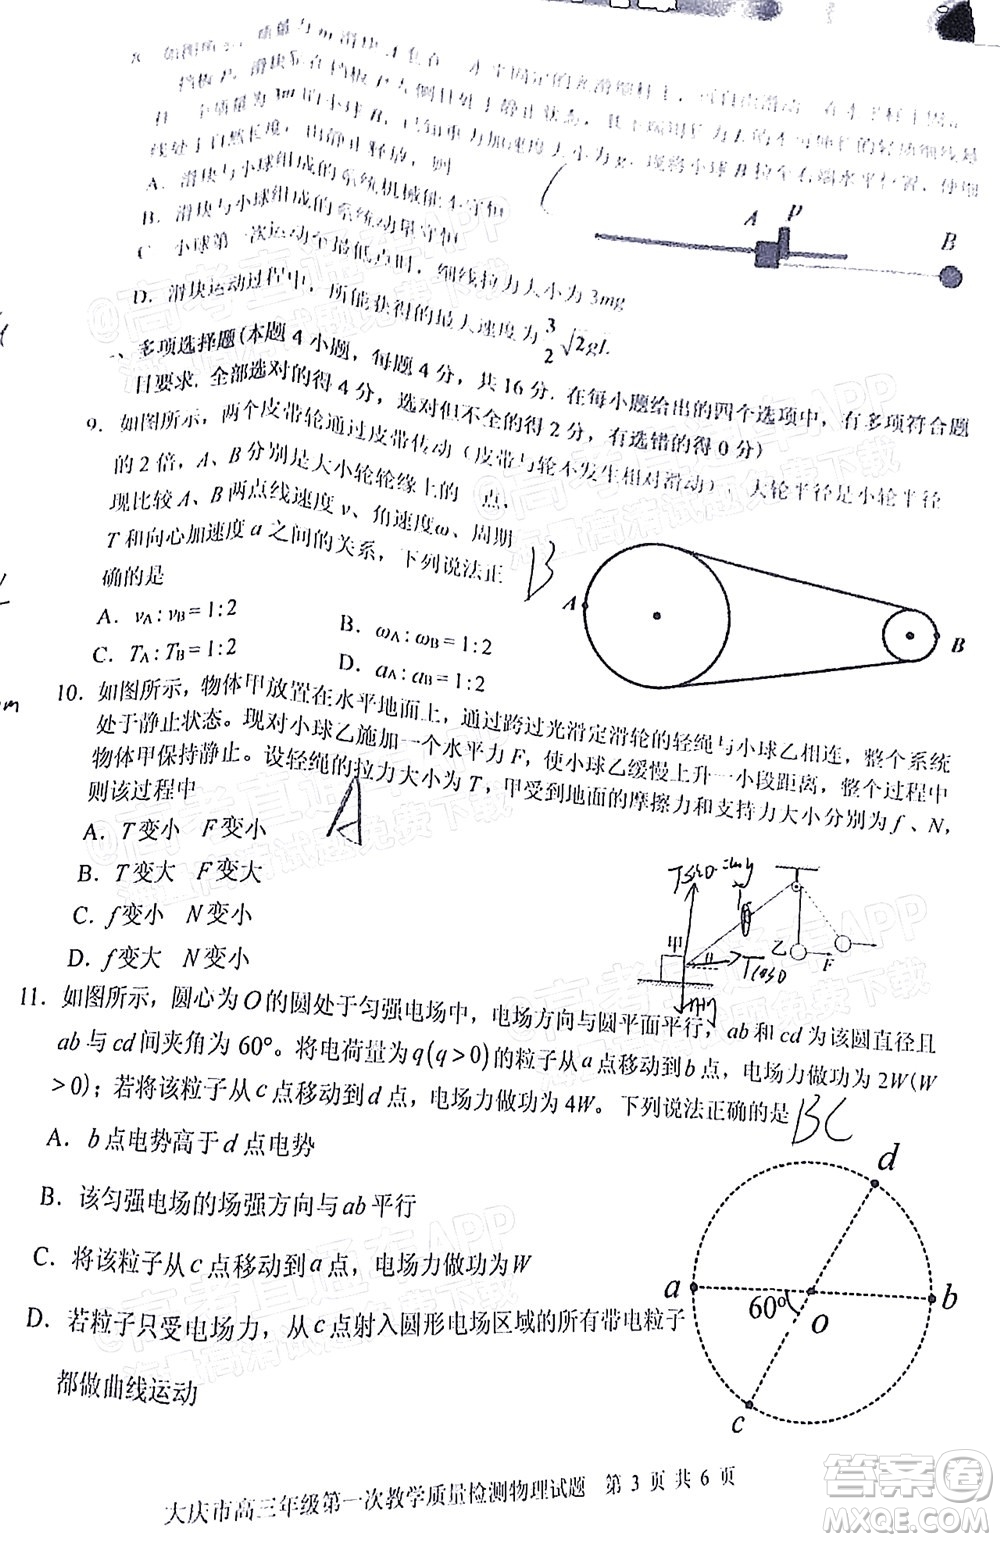 8. 如图所示，质量为m滑块A套在一水平固定的光滑细杆上，可自由滑动。在水平杆上固定一
挡板P，滑块靠在挡板P左侧且处于静止状态，其下端用长为L的不可伸长的轻质细线悬
一个质量为3m的小球B，已知重力加速度大小为g，现将小球B拉至右端水平位置，使细
线处于自然长度，由静止释放，则
A．滑块与小球组成的系统机械能不守恒
B．滑块与小球组成的系统动量守恒
C．小球第一次运动至最低点时，细线拉力大小为3mg
D．滑块运动过程中，所能获得的最大速度为3/2√2gL
A P B
多项选择题(本题4小题，每题4分，共16分．在每小题给出的四个选项中，有多项符合题
目要求．全部选对的得4分，选对但不全的得2分，有选错的得0分)
9．如图所示，两个皮带轮通过皮带传动（皮带与轮不发生相对滑动），大轮半径是小轮半径
的2倍，A、B分别是大小轮轮缘上的 点，
现比较A、B两点线速度v、角速度ω、周期
T和向心加速度a之间的关系，下列说法正
确的是
B
A．vA:vB=1:2
B．ωA:ωB=1:2
C．TA:TB=1:2
D．aA:aB=1:2
A B
10．如图所示，物体甲放置在水平地面上，通过跨过光滑定滑轮的轻绳与小球乙相连，整个系统
处于静止状态。现对小球乙施加一个水平力F，使小球乙缓慢上升一小段距离，整个过程中
物体甲保持静止。设轻绳的拉力大小为T，甲受到地面的摩擦力和支持力大小分别为f、N，
则该过程中
A
A．T变小 F变小
B．T变大 F变大
C．f变小 N变小
D．f变大 N变小
甲 乙 F
11．如图所示，圆心为O的圆处于匀强电场中，电场方向与圆平面平行，ab和cd为该圆直径且
ab与cd间夹角为60°。将电荷量为q(q>0)的粒子从a点移动到b点，电场力做功为2W(W
>0)；若将该粒子从c点移动到d点，电场力做功为4W。下列说法正确的是
BC
A．b点电势高于d点电势
B．该匀强电场的场强方向与ab平行
C．将该粒子从c点移动到a点，电场力做功为W
D．若粒子只受电场力，从c点射入圆形电场区域的所有带电粒子
都做曲线运动
d
a 60° O b
c
大庆市高三年级第一次教学质量检测物理试题 第3页共6页